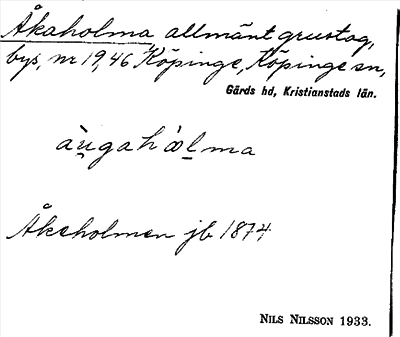 Åkaholma, allmänt grustag,
bys, nr 19,46 Köpinge, Köpinge sn,
Gärds hd, Kristianstads län.
àu̯gahòl̯ma
Åkeholmen jb 1874
NILS NILSSON 1933.